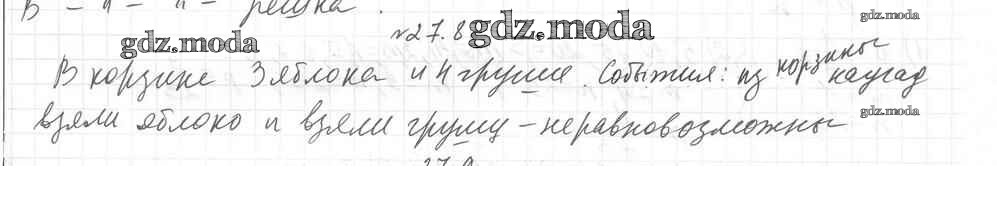 В – " – " – решка.
№27.8
В корзине 3 яблока и 4 груши. События: из корзины наугад
взяли яблоко и взяли грушу – неравновозможны
27.9
gdz.moda
gdz.moda
gdz.moda
gdz.moda